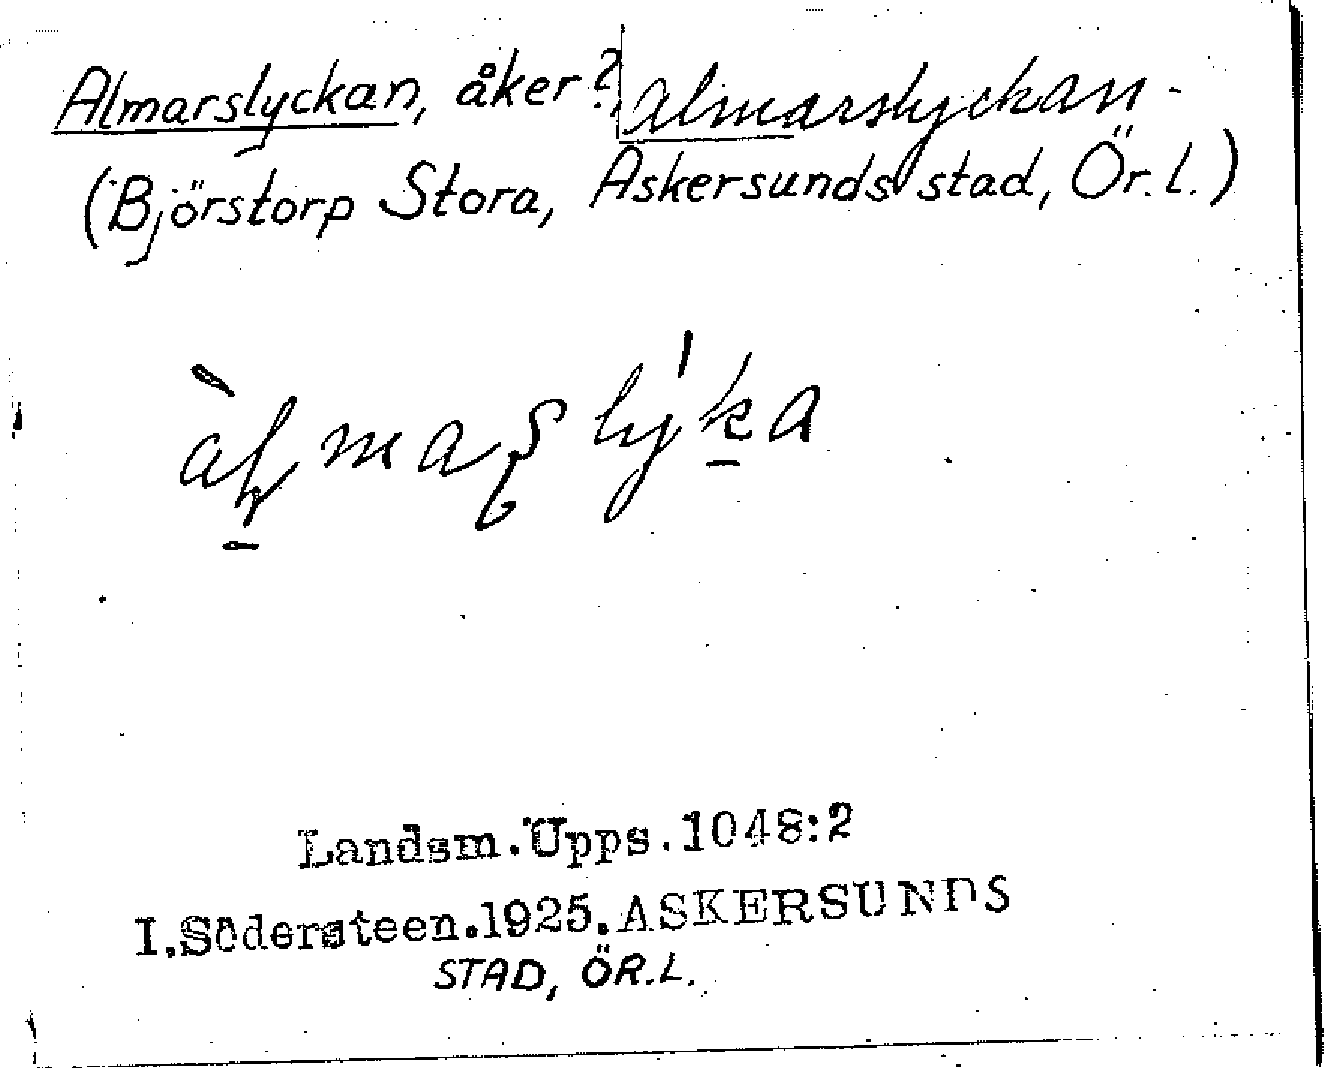 Almarslyckan, åker? Almarslyckan
(Björstorp Stora, Askersunds stad, Ör. l.)
Landsm. Upps. 1048:2
I. Södersteen. 1925. ASKERSUNDS
STAD, ÖR. L.